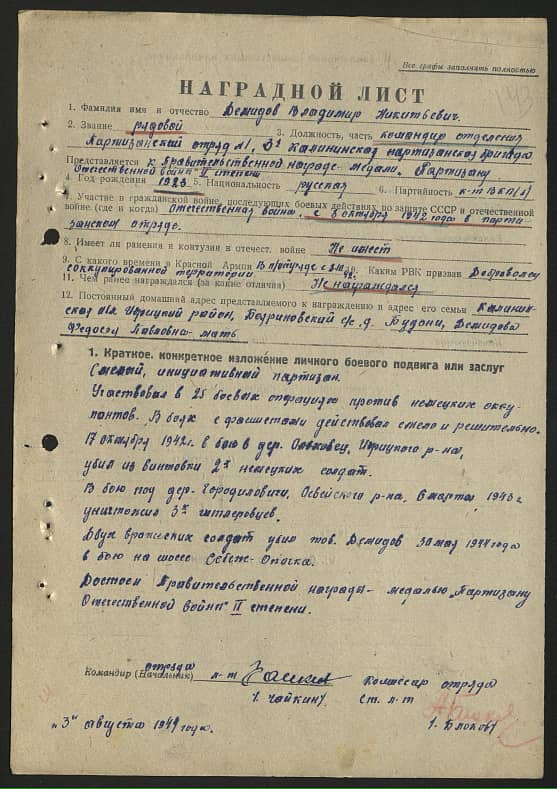 Все графы заполнять полностью
НАГРАДНОЙ ЛИСТ
1. Фамилия имя и отчество Демидов Владимир Никитьевич.
2. Звание рядовой 3. Должность, часть командир отделения
Партизанский отряд №1, 3я Калининская партизанская бригада
Представляется к Правительственной награде-медали „Партизану
Отечественной войны" II степени
4. Год рождения 1923 5. Национальность русская 6. Партийность к-т ВКП(б)
7. Участие в гражданской войне, последующих боевых действиях по защите СССР и отечественной
войне (где и когда) Отечественная война, с 8 октября 1942 года в парти-
занском отряде.
8. Имеет ли ранения и контузии в отечест. войне Не имеет
9. С какого времени в Красной Армии В п/отряде с 10. Каким РВК призван Доброволец
с оккупированной территории
11. Чем ранее награжден (за какие отличия) Не награждался
12. Постоянный домашний адрес представляемого к награждению и адрес его семьи Калинин-
ская обл. Идрицкий район, Бояриновский с/с. д. Будони, Демидова
Федосья Павловна-мать
1. Краткое, конкретное изложение личного боевого подвига или заслуг
Смелый, инициативный партизан.
Участвовал в 25 боевых операциях против немецких окку-
пантов. В боях с фашистами действовал смело и решительно.
17 октября 1942 г. в бою в дер. Идрицкого р-на,
убил из винтовки 2х немецких солдат.
В бою под дер. Городиловичи, Освейского р-на, 6 марта 1943 г
уничтожил 3х гитлеровцев.
Двух вражеских солдат убил тов. Демидов 30 мая 1944 года
в бою на шоссе Себеж-Опочка.
Достоин Правительственной награды- медалью „Партизану
Отечественной войны" II степени.
Командир (Начальник) отряда л-т Чайкин комиссар отряда
/. Чайкин/ ст. л-т
„3" августа 1944 года. /. Блоков/